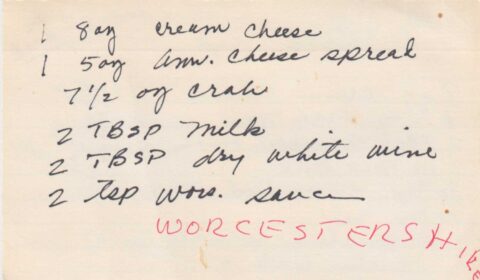 1 8oz cream cheese
1 5oz Am. cheese spread
7 1/2 oz crab
2 TBSP milk
2 TBSP dry white wine
2 tsp wors. sauce
WORCESTERSHIRE